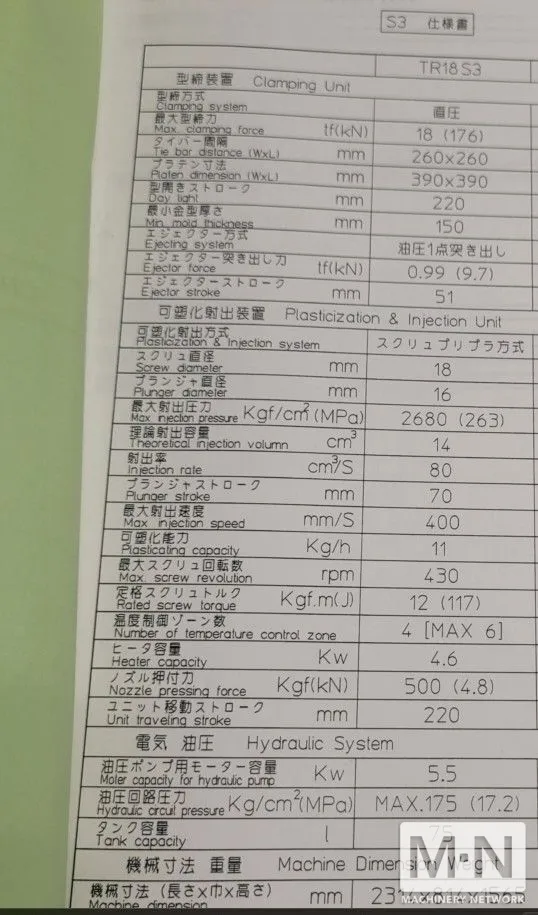 S3 仕様書
TR18S3
型締装置 Clamping Unit
型締方式
Clamping system
直圧
最大型締力
Max. clamping force tf(kN) 18 (176)
タイバー間隔
Tie bar distance (WxL) mm 260x260
プラテン寸法
Platen dimension (WxL) mm 390x390
型開きストローク
Day light mm 220
最小金型厚さ
Min. mold thickness mm 150
エジェクター方式
Ejecting system
油圧1点突き出し
エジェクター突き出し力
Ejector force tf(kN) 0.99 (9.7)
エジェクターストローク
Ejector stroke mm 51
可塑化射出装置 Plasticization & Injection Unit
可塑化射出方式
Plasticization & Injection system
スクリュプリプラ方式
スクリュ直径
Screw diameter mm 18
プランジャ直径
Plunger diameter mm 16
最大射出圧力
Max injection pressure Kgf/cm²(MPa) 2680 (263)
理論射出容量
Theoretical injection volumn cm³ 14
射出率
Injection rate cm³/S 80
プランジャストローク
Plunger stroke mm 70
最大射出速度
Max. injection speed mm/S 400
可塑化能力
Plasticating capacity Kg/h 11
最大スクリュ回転数
Max. screw revolution rpm 430
定格スクリュトルク
Rated screw torque Kgf.m(J) 12 (117)
温度制御ゾーン数
Number of temperature control zone 4 [MAX 6]
ヒータ容量
Heater capacity Kw 4.6
ノズル押付力
Nozzle pressing force Kgf(kN) 500 (4.8)
ユニット移動ストローク
Unit traveling stroke mm 220
電気 油圧 Hydraulic System
油圧ポンプ用モーター容量
Moter capacity for hydraulic pump Kw 5.5
油圧回路圧力
Hydraulic circuit pressure Kg/cm²(MPa) MAX.175 (17.2)
タンク容量
Tank capacity l 75
機械寸法 重量 Machine Dimension Weight
機械寸法 (長さx巾x高さ)
Machine dimension mm
M·N
MACHINERY NETWORK